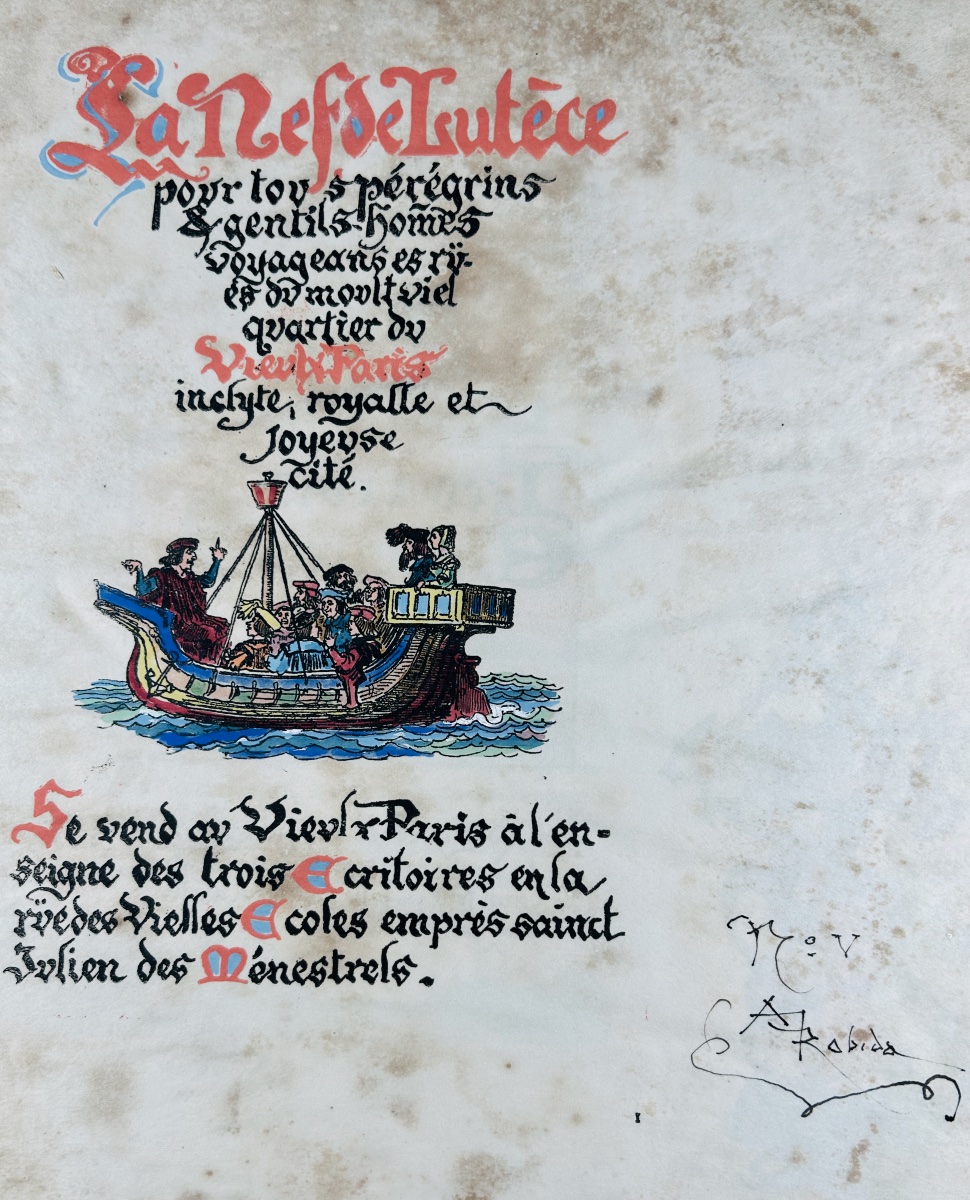 La Nef de Lutèce
povr tovs pérégrins
& gentils-hom̃es
voyageans es rv̈-
es dv movlt viel
qvartier dv
Vievlx Paris
inclyte, royalle et
Joyevse
cité.
Se vend av Vievlx Paris à l'en-
seigne des trois Ecritoires en la
rv̈e des Vielles Ecoles emprès sainct
Jvlien des Ménestrels.
No V
A Robida
1